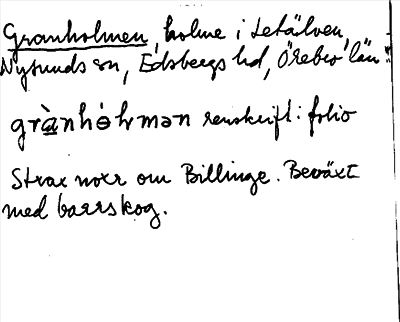 Granholmen, holme i Letälven,
Nysunds sn, Edsbergs hd, Örebro län.
grànhòlmən renskrift: folio
Strax norr om Billinge. Beväxt
med barrskog.